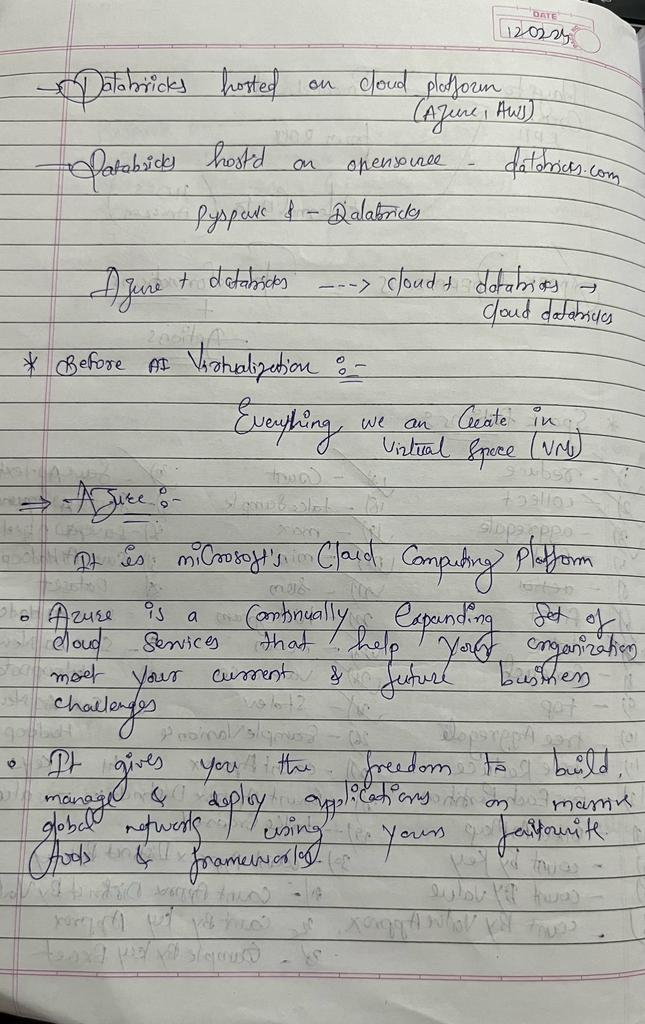 DATE
120224
→ Databricks hosted on cloud platform
(Azure, AWS)
→ Databricks hostd on opensource - databricks.com
Pyspark & - Databricks
Azure + databricks ---> cloud + databricks →
cloud databricks
* Before AI Virtualization :-
Everything we an Create in
Virtual Space (VMs)
⇒ Azure :-
It is microsoft's Cloud Computing Platform
• Azure is a Continually Expanding Set of
cloud Services that help your organization
meet your current & future business
challenges
• It gives you the freedom to build,
manage & deploy applications on massive
global network using yours favourite
tools & frameworks.